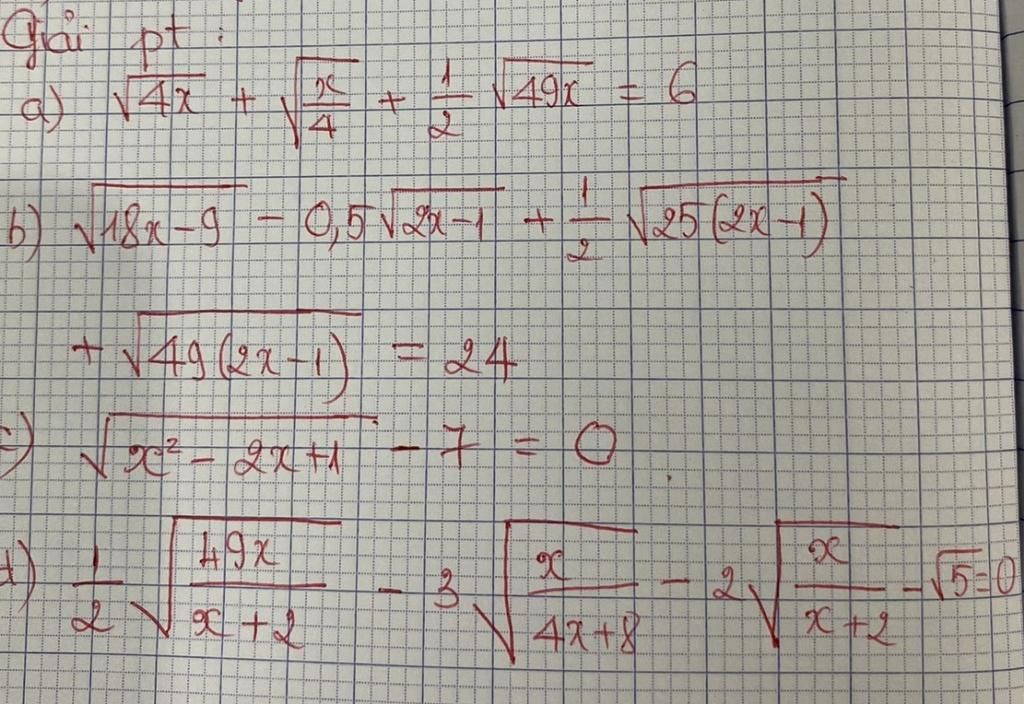 Giải pt :
a) √4x + √(x/4) + 1/2 √49x = 6
b) √(18x-9) - 0,5√(2x-1) + 1/2 √(25(2x-1))
+ √(49(2x-1)) = 24
c) √(x²- 2x+1) - 7 = 0
d) 1/2 √(49x/(x+2)) - 3√(x/(4x+8)) - 2√(x/(x+2)) - √5=0